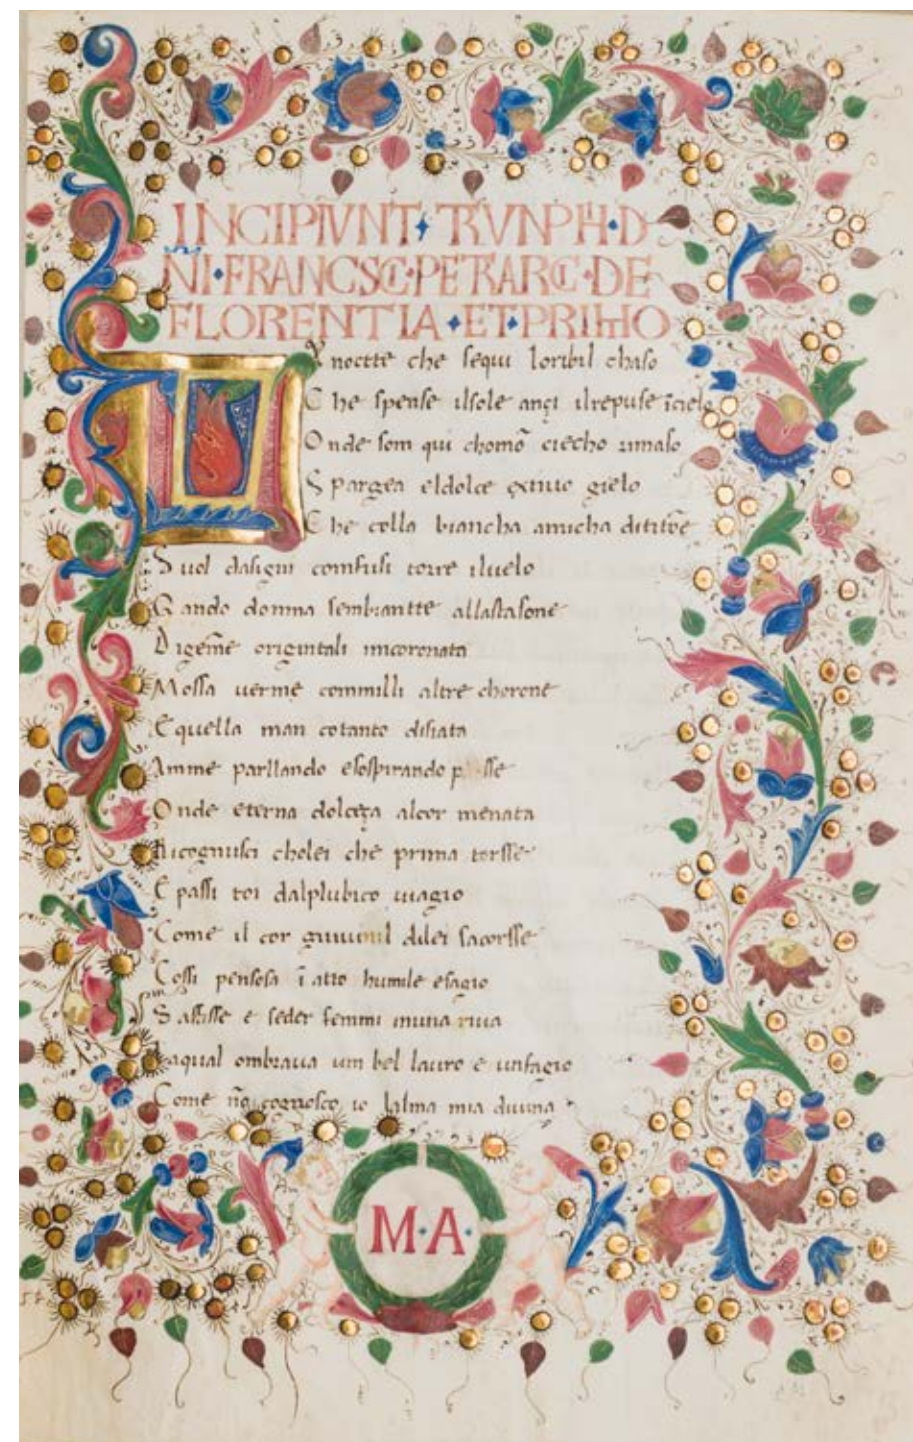 INCIPIVNT TRVNPH·D
NI·FRANCSCI·PETRARCI·DE
FLORENTIA·ET·PRIMO
LA nocte che sequi loribil chaso
Che spense ilsole ançi ilrepuse ĩcielo
Onde som qui chomõ ciecho rimaso
Spargea eldolce estiuo gielo
Che colla biancha amicha di
Suol dasigni comfusi torre iluelo
Quando donna sembiantte allastasone
Digẽme origintali incoronata
Mossa uerme commilli altre chorone
E quella man cotanto disiata
Amme parllando esospirando porsse
Onde eterna dolceça alcor menata
Ricognusci cholei che prima torsse
E passi toi dalplubico uiagio
Come il cor giuuinil dilei sacorsse
Cossi pensosa ĩ atto humile esagio
Sassisse e seder femmi inuna riua
Laqual ombraua um bel lauro e unfagio
Come nõ cognosco io lalma mia diuina
M·A·